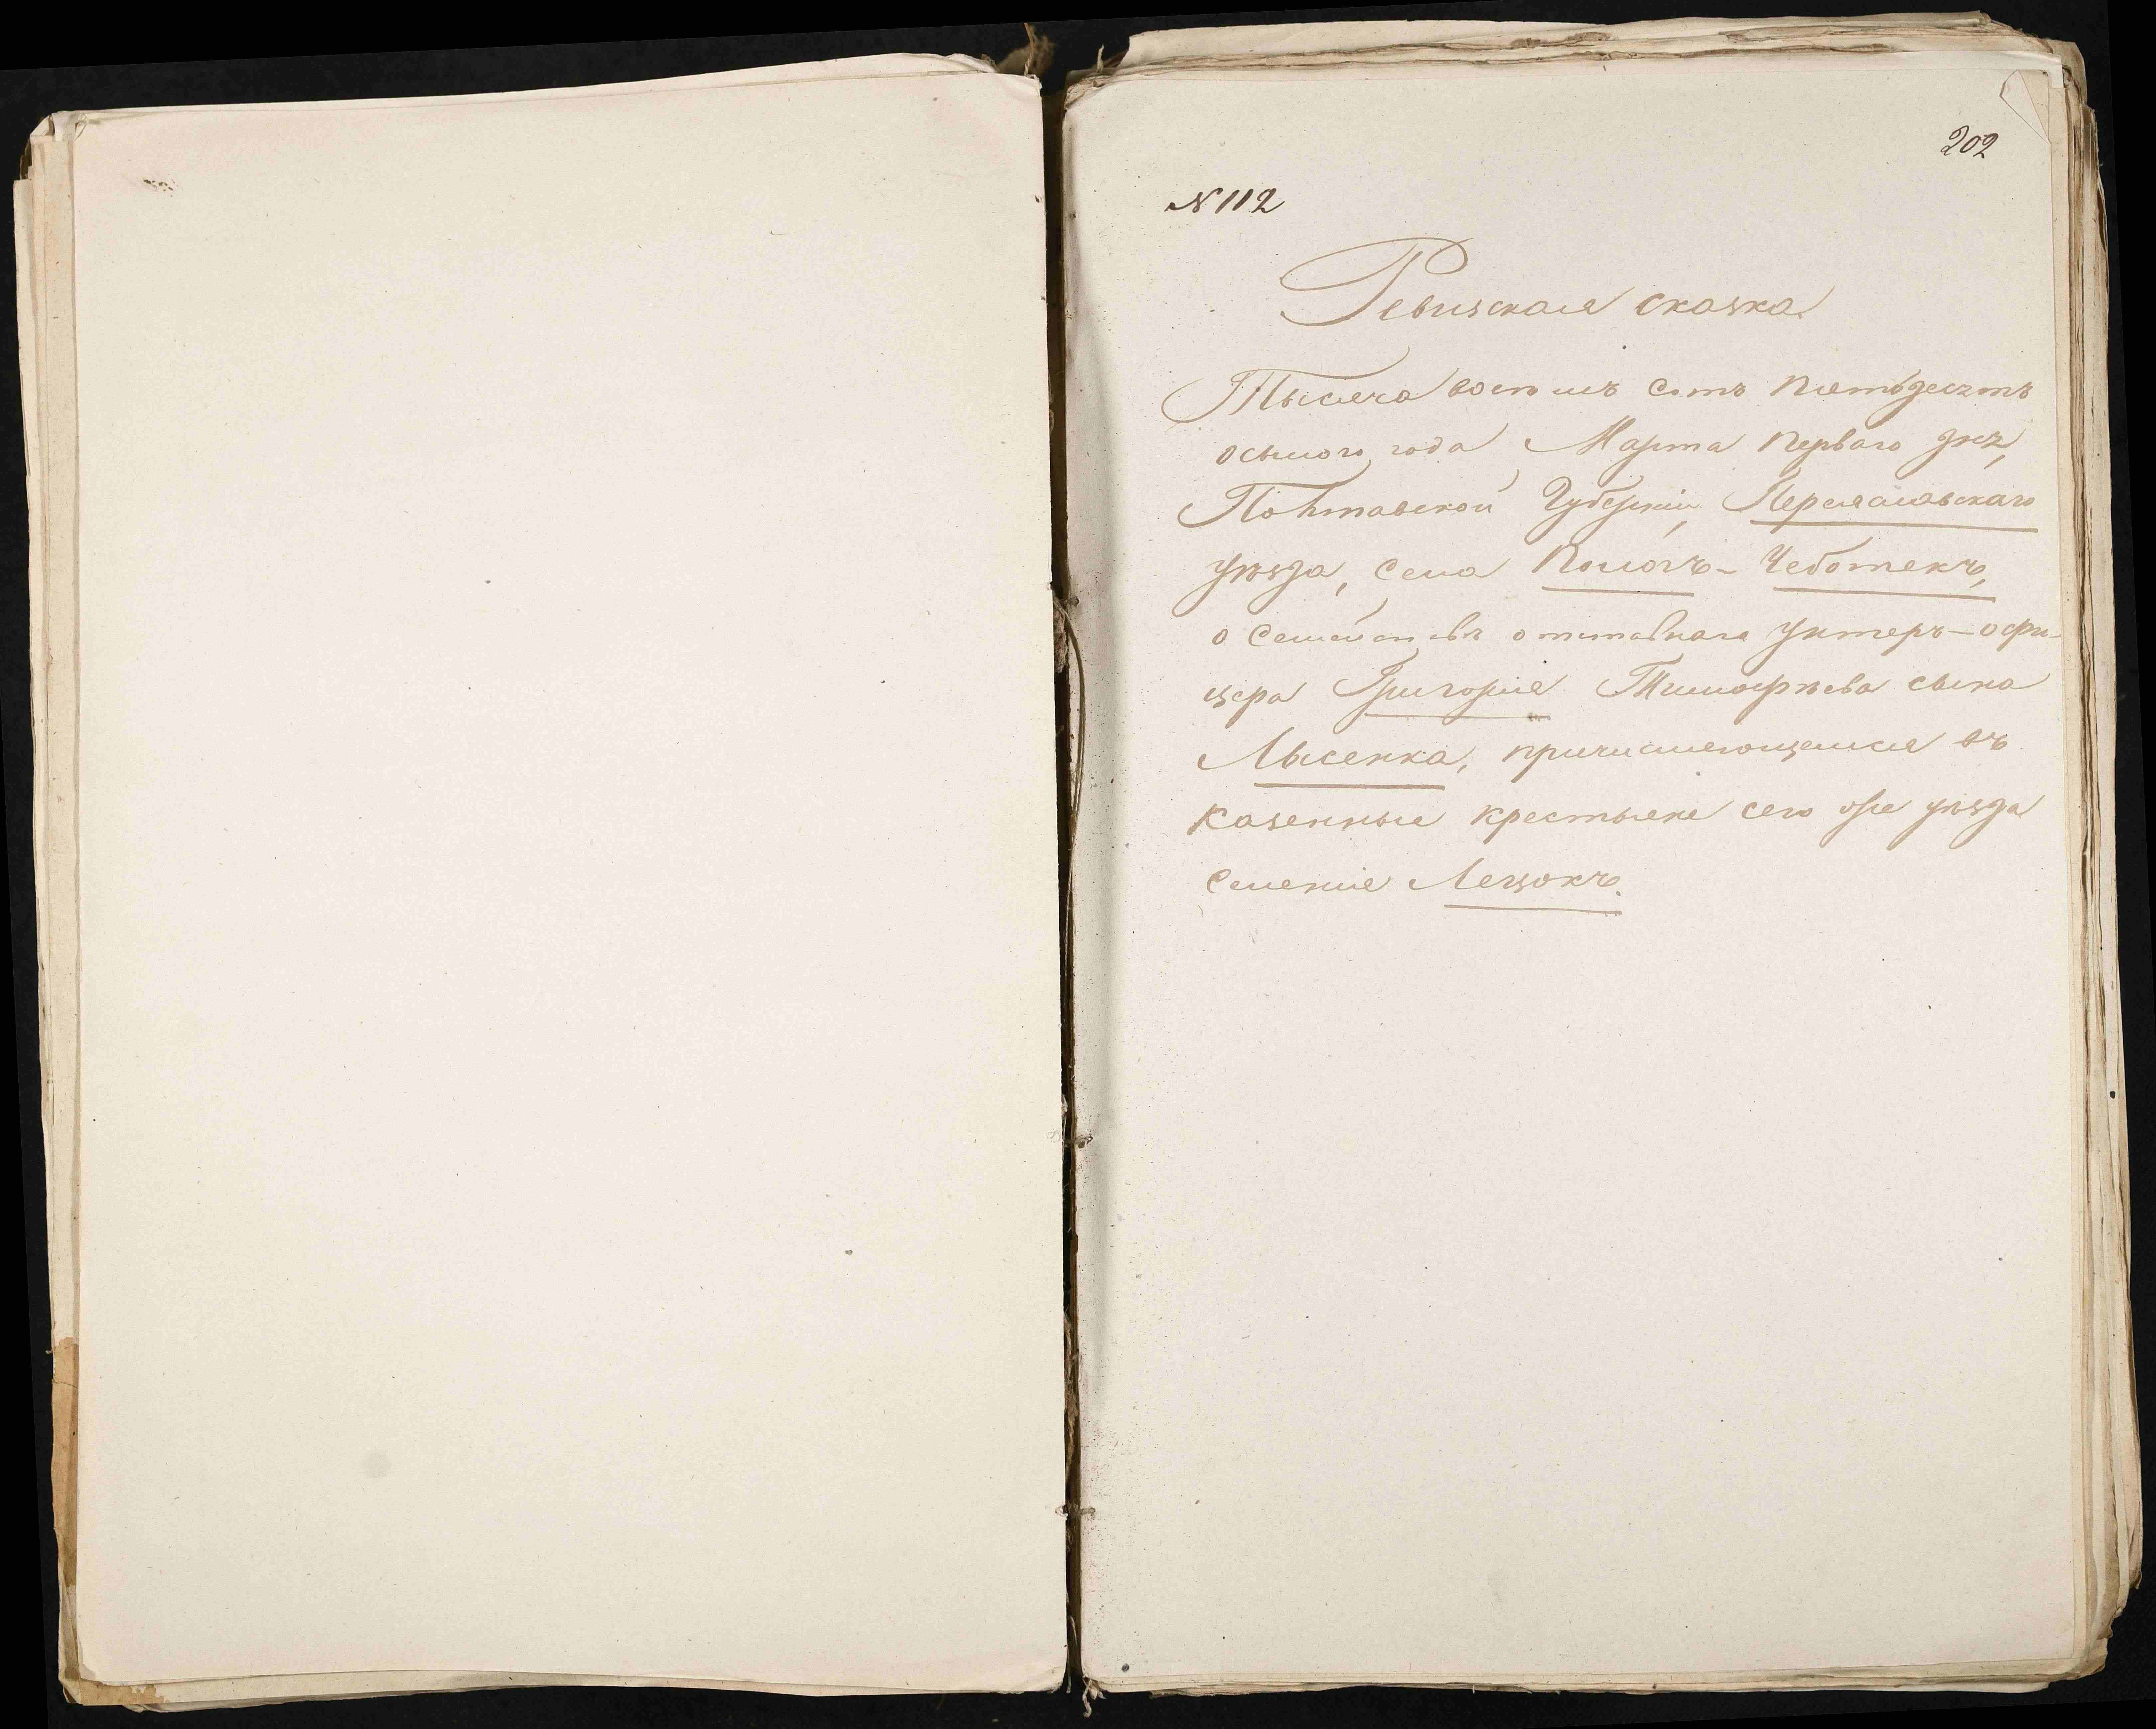 202
№ 112
Ревизская сказка
Тысяча восемь сотъ пятьдесятъ
осьмого года Марта перваго дня,
Полтавской Губерніи, Переяславскаго
уѣзда, села Помоклъ-Чеботекъ,
о Семействѣ отставнаго унтеръ-офи-
цера Григорія Тимофѣева сына
Лысенка, причисляющемся въ
казенные крестьяне сего же уѣзда
селенія Лецокъ.